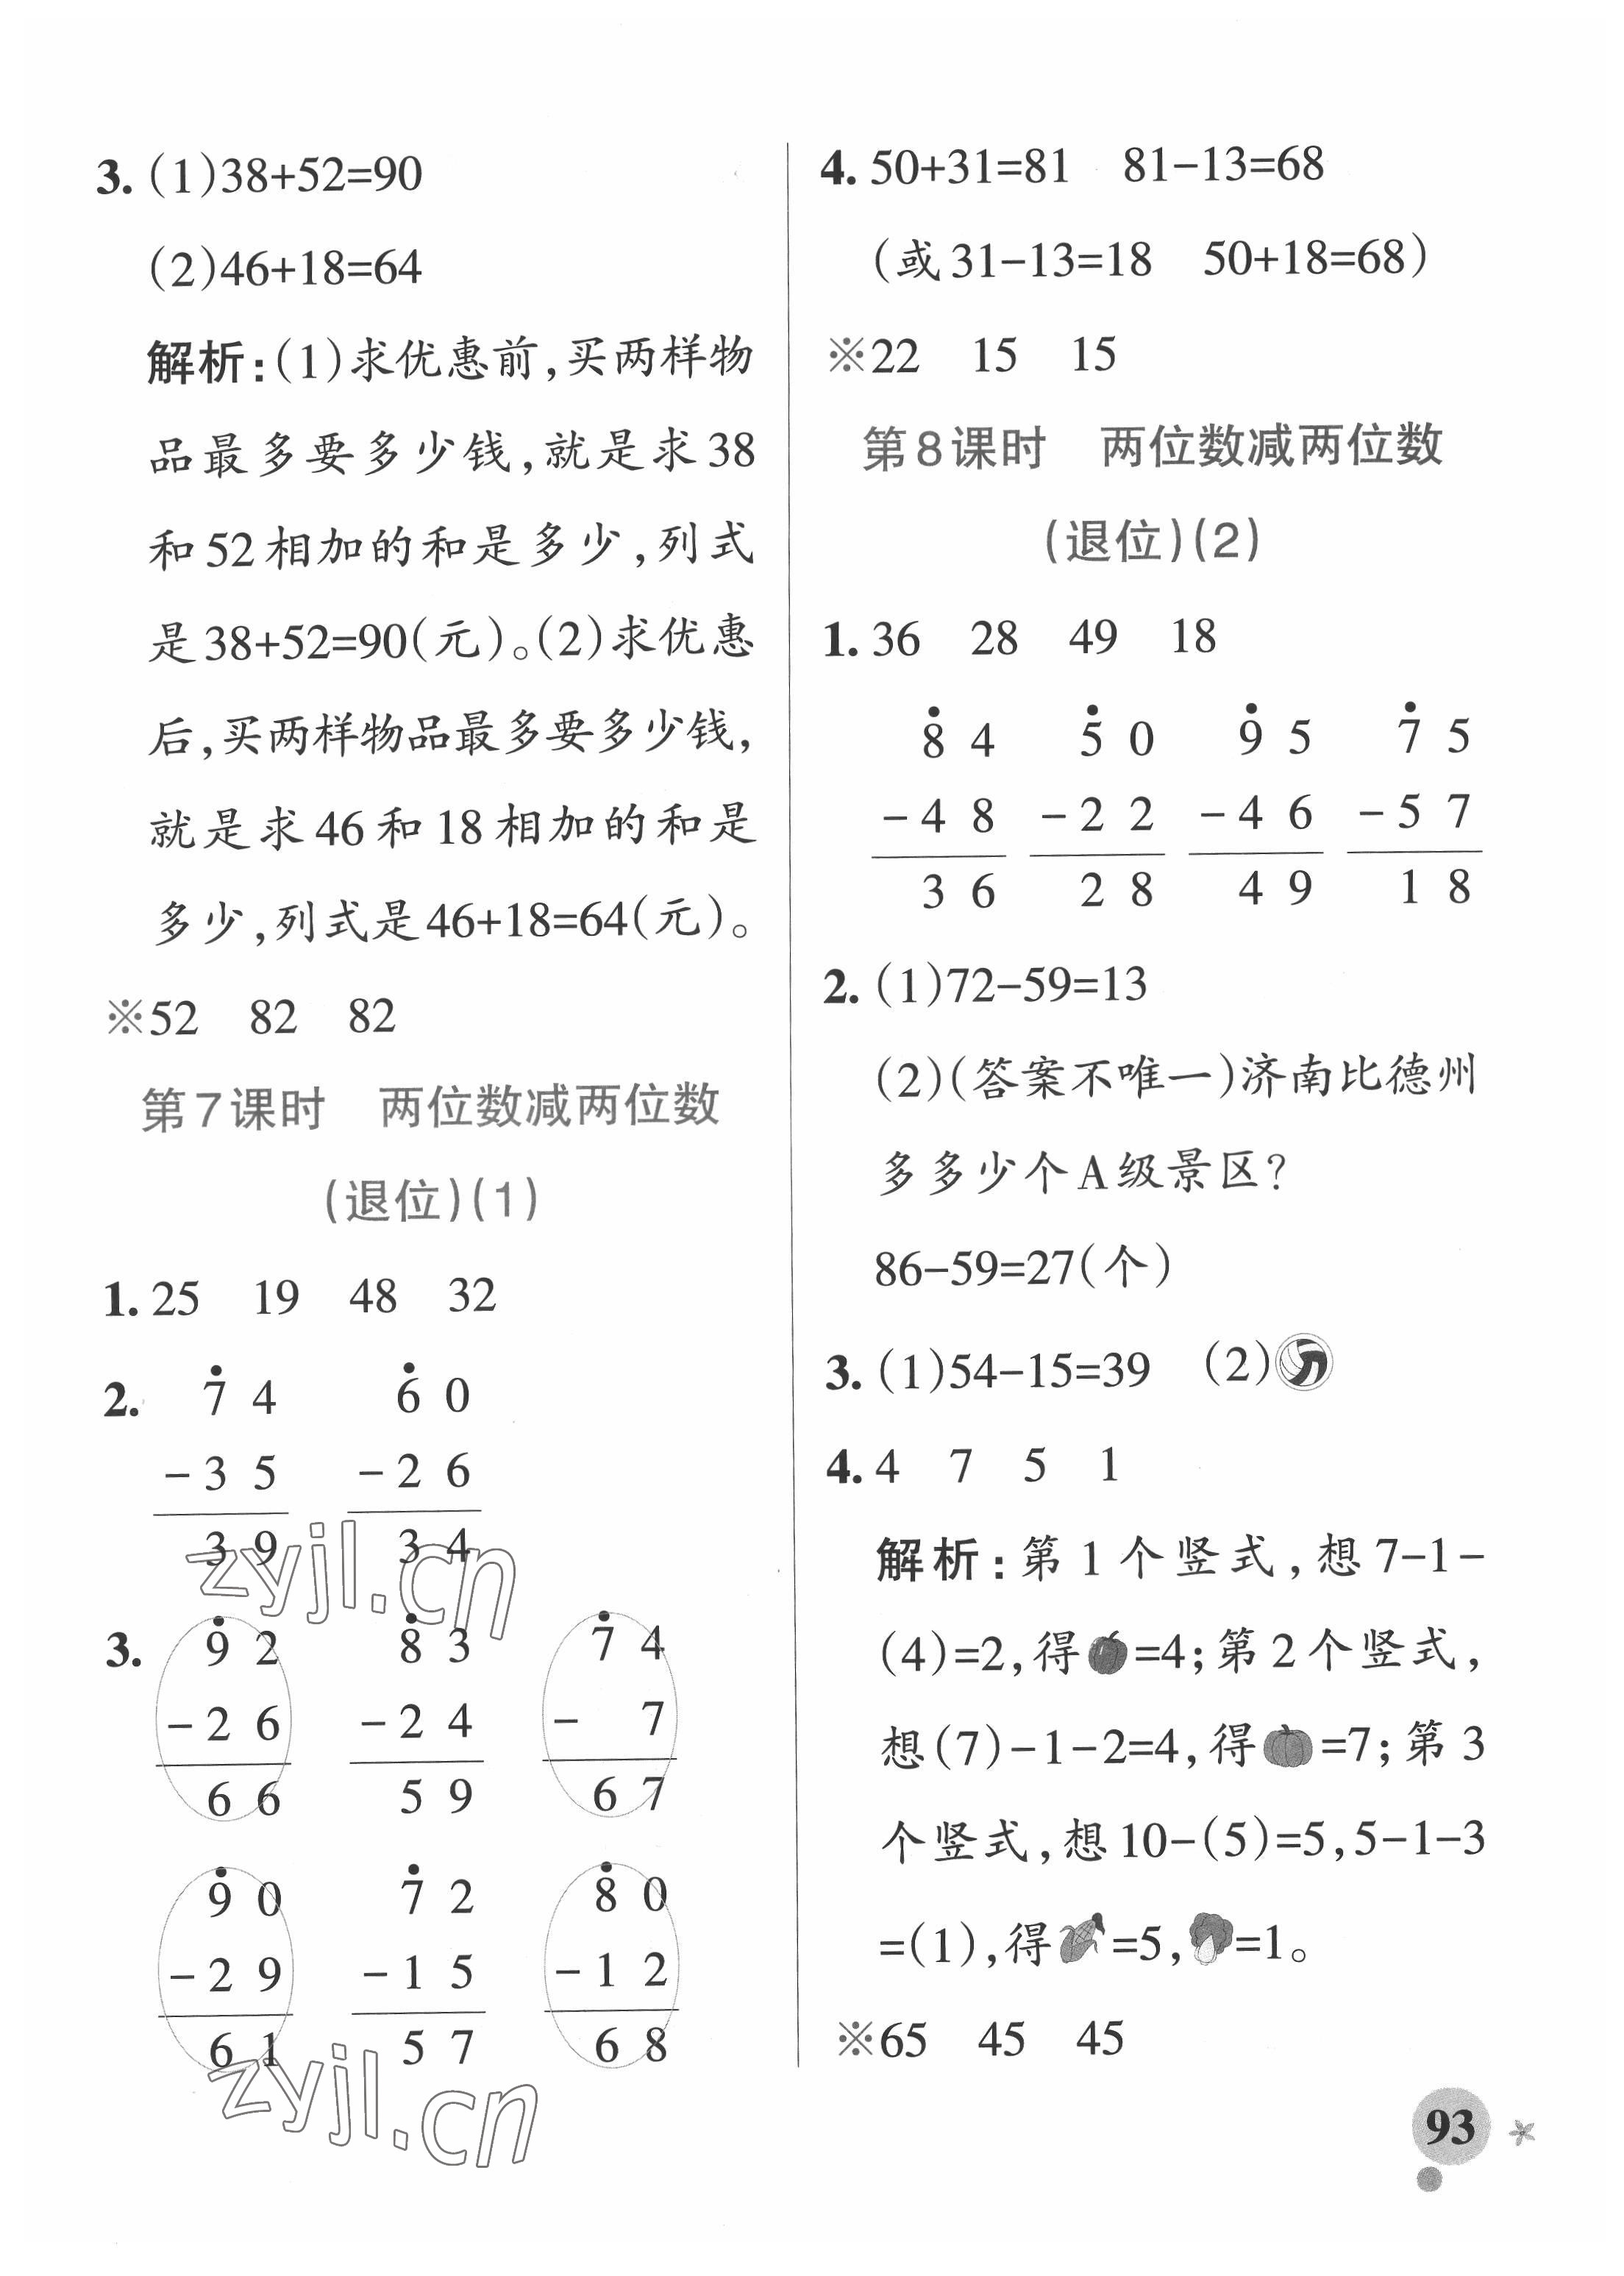 3. (1)38+52=90
(2)46+18=64
解析:(1)求优惠前,买两样物
品最多要多少钱,就是求38
和52相加的和是多少,列式
是38+52=90(元)。(2)求优惠
后,买两样物品最多要多少钱,
就是求46和18相加的和是
多少,列式是46+18=64(元)。
※52 82 82
第7课时 两位数减两位数
(退位)(1)
1. 25 19 48 32
2. 7 4 6 0
-3 5 -2 6
3 9 3 4
zyjl.cn
3. 9 2 8 3 7 4
-2 6 -2 4 - 7
6 6 5 9 6 7
9 0 7 2 8 0
-2 9 -1 5 -1 2
6 1 5 7 6 8
zyjl.cn
4. 50+31=81 81-13=68
(或31-13=18 50+18=68)
※22 15 15
第8课时 两位数减两位数
(退位)(2)
1. 36 28 49 18
8 4 5 0 9 5 7 5
-4 8 -2 2 -4 6 -5 7
3 6 2 8 4 9 1 8
2. (1)72-59=13
(2)(答案不唯一)济南比德州
多多少个A级景区?
86-59=27(个)
3. (1)54-15=39 (2)
4. 4 7 5 1
解析:第1个竖式,想7-1-
(4)=2,得=4;第2个竖式,
想(7)-1-2=4,得=7;第3
个竖式,想10-(5)=5,5-1-3
=(1),得=5,=1。
※65 45 45
93